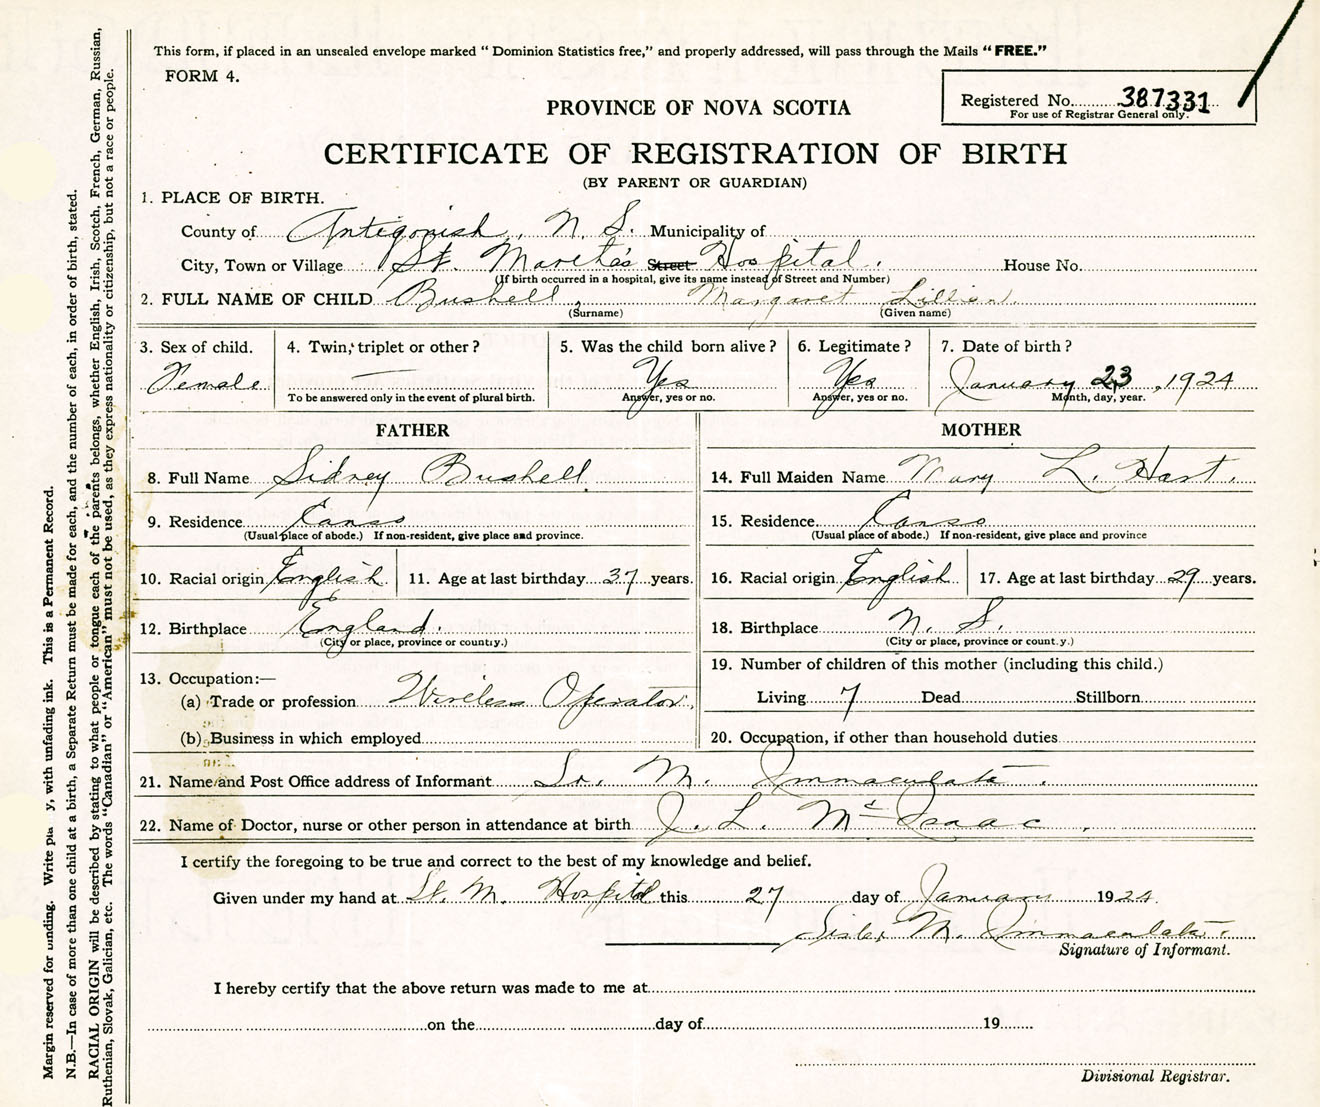 This form, if placed in an unsealed envelope marked "Dominion Statistics free," and properly addressed, will pass through the Mails "FREE."
FORM 4.
Registered No. 387331
For use of Registrar General only.
PROVINCE OF NOVA SCOTIA
CERTIFICATE OF REGISTRATION OF BIRTH
(BY PARENT OR GUARDIAN)
1. PLACE OF BIRTH.
County of Antigonish, N. S. Municipality of
City, Town or Village St. Martha's Street Hospital. House No.
(If birth occurred in a hospital, give its name instead of Street and Number)
2. FULL NAME OF CHILD Bushell, Margaret Lillian
(Surname) (Given name)
3. Sex of child. 4. Twin, triplet or other? 5. Was the child born alive? 6. Legitimate? 7. Date of birth?
Female — Yes Yes January 23, 1924
To be answered only in the event of plural birth. Answer, yes or no. Answer, yes or no. Month, day, year.
FATHER MOTHER
8. Full Name Sidney Bushell 14. Full Maiden Name Mary L. Hart.
9. Residence Canso 15. Residence Canso
(Usual place of abode.) If non-resident, give place and province. (Usual place of abode.) If non-resident, give place and province
10. Racial origin English 11. Age at last birthday 37 years. 16. Racial origin English 17. Age at last birthday 29 years.
12. Birthplace England. 18. Birthplace N. S.
(City or place, province or country.) (City or place, province or count.y.)
13. Occupation:— 19. Number of children of this mother (including this child.)
(a) Trade or profession Wireless Operator. Living 7 Dead Stillborn
(b) Business in which employed 20. Occupation, if other than household duties
21. Name and Post Office address of Informant Sr. M. Immaculata.
22. Name of Doctor, nurse or other person in attendance at birth J. L. McIsaac.
I certify the foregoing to be true and correct to the best of my knowledge and belief.
Given under my hand at St. M. Hospital this 27 day of January 1924.
Sister M. Immaculata.
Signature of Informant.
I hereby certify that the above return was made to me at
on the day of 19
Divisional Registrar.
Margin reserved for binding. Write plainly, with unfading ink. This is a Permanent Record.
N.B.—In case of more than one child at a birth, a Separate Return must be made for each, and the number of each, in order of birth, stated.
RACIAL ORIGIN will be described by stating to what people or tongue each of the parents belongs, whether English, Irish, Scotch, French, German, Russian,
Ruthenian, Slovak, Galician, etc. The words "Canadian" or "American" must not be used, as they express nationality or citizenship, but not a race or people.